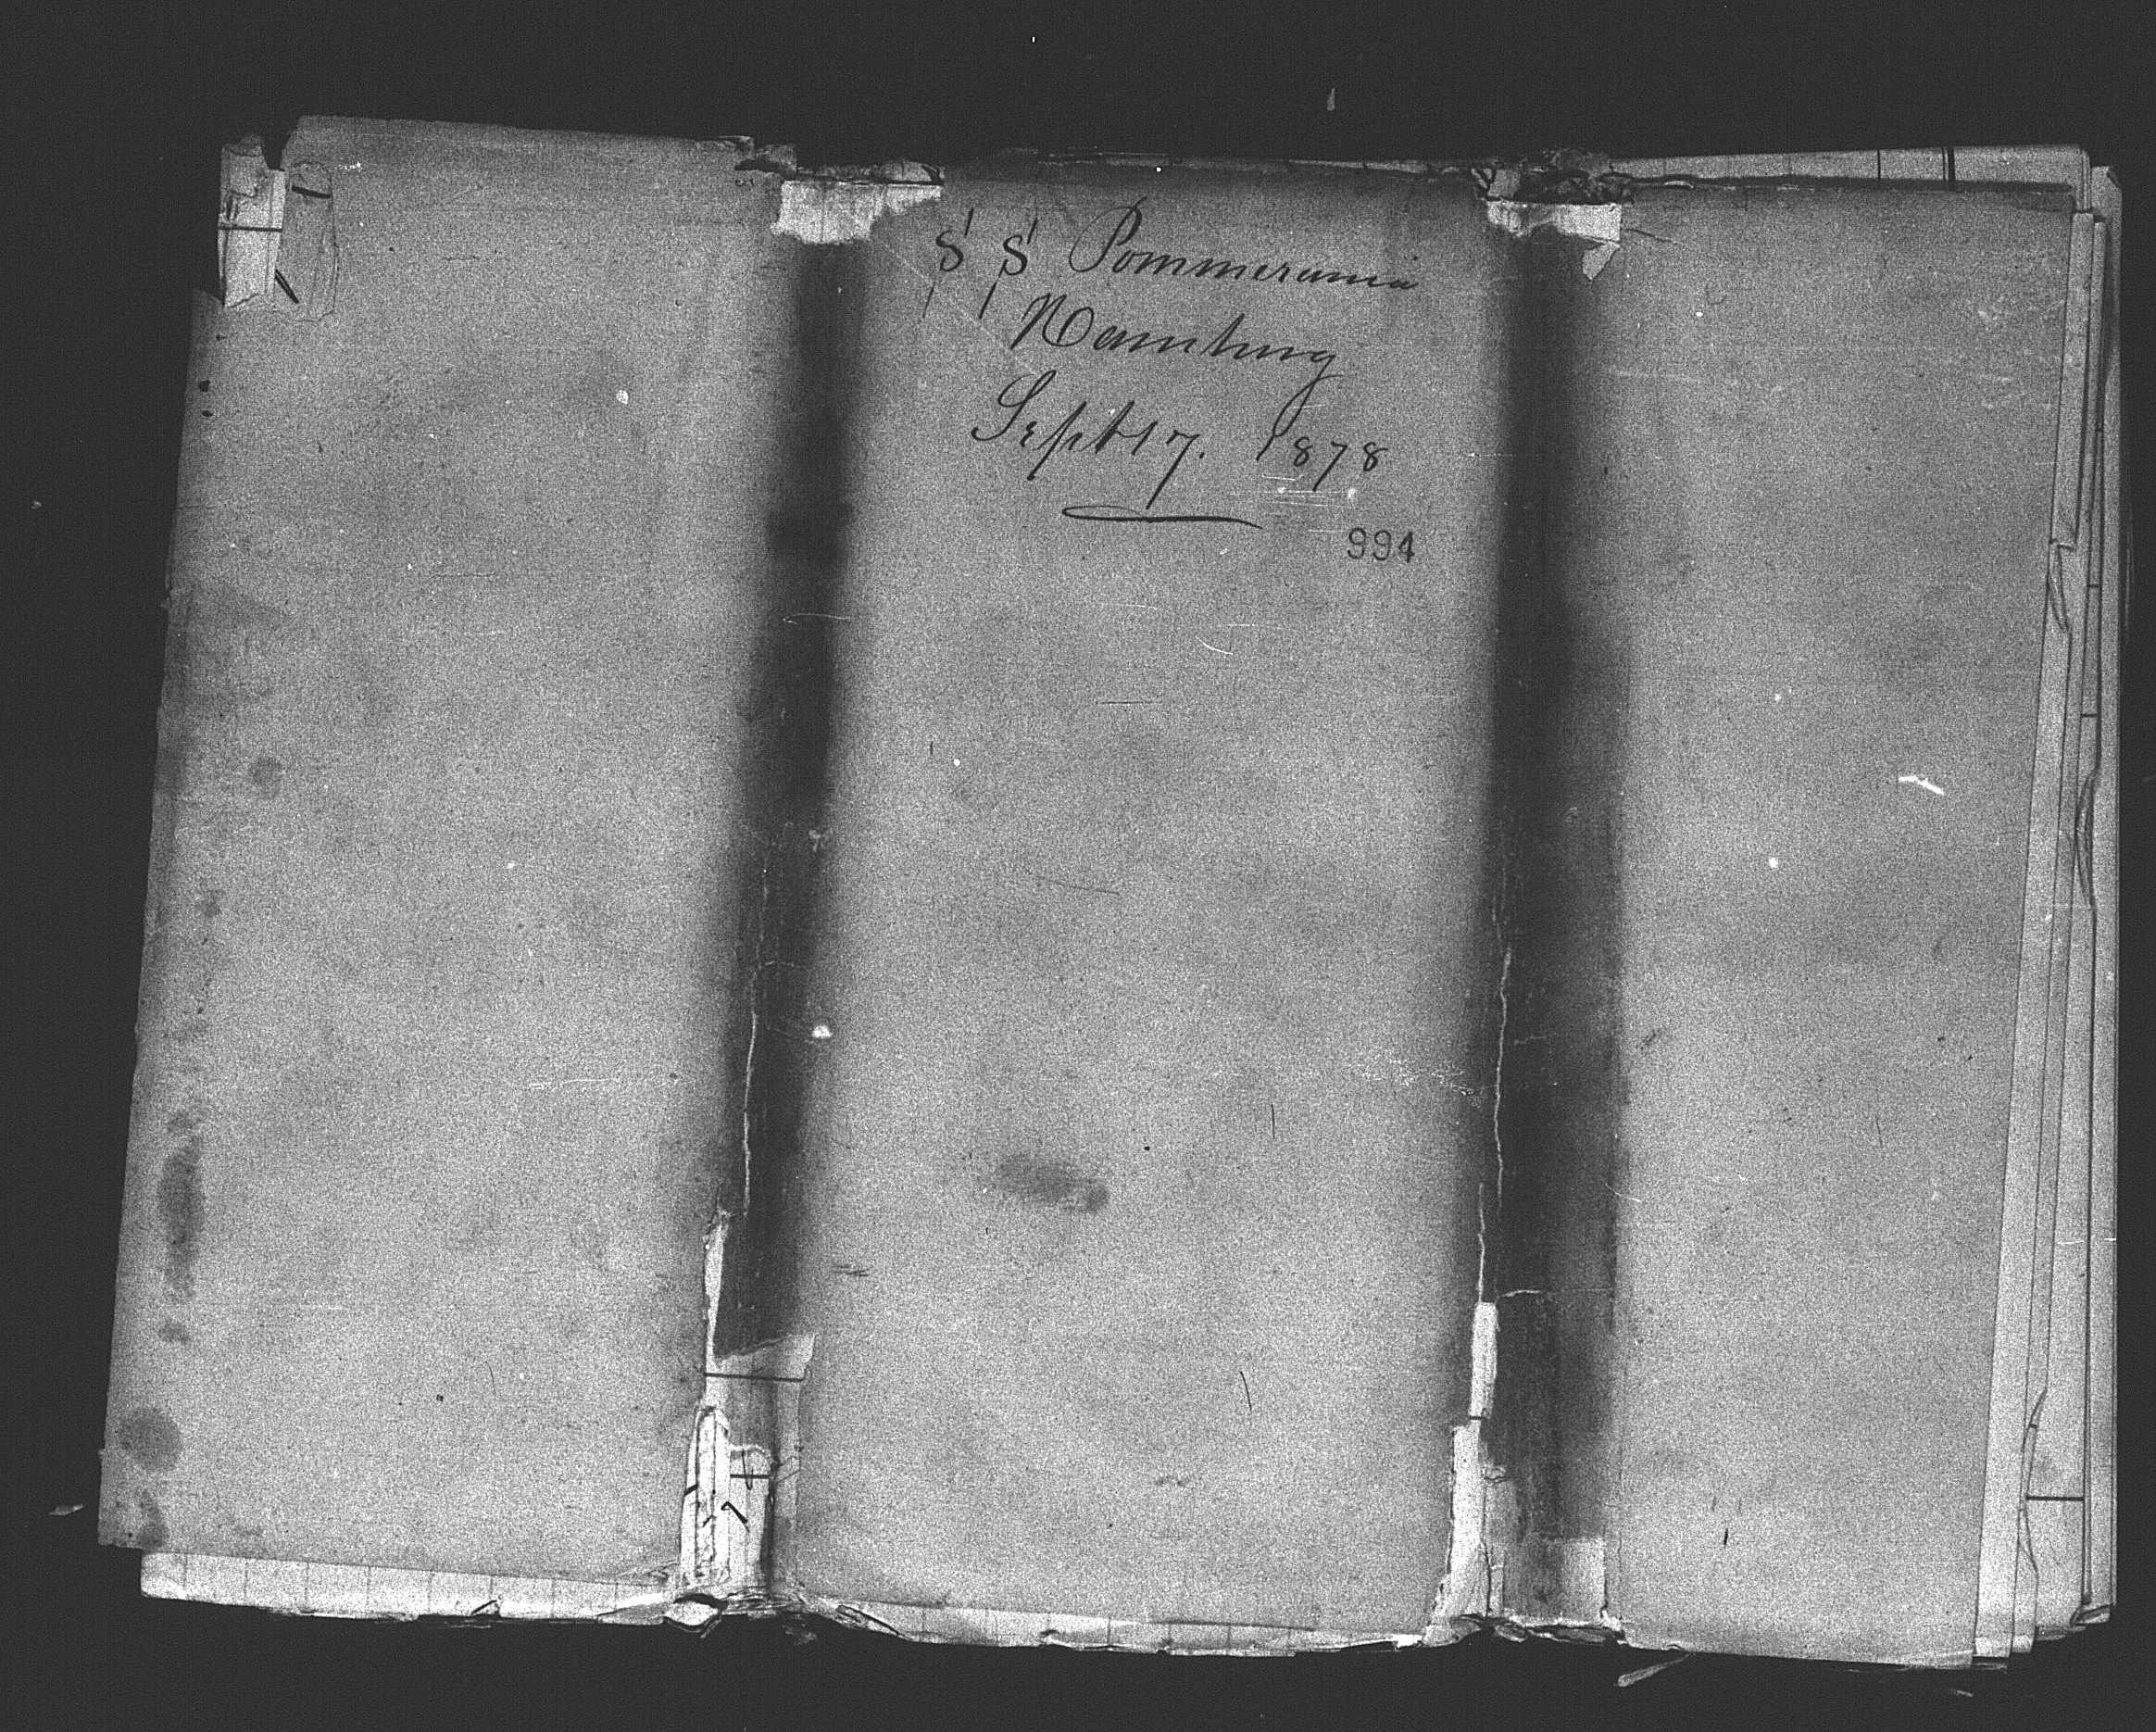 S S Pommerania
Hamburg
Sept 17. 1878
994